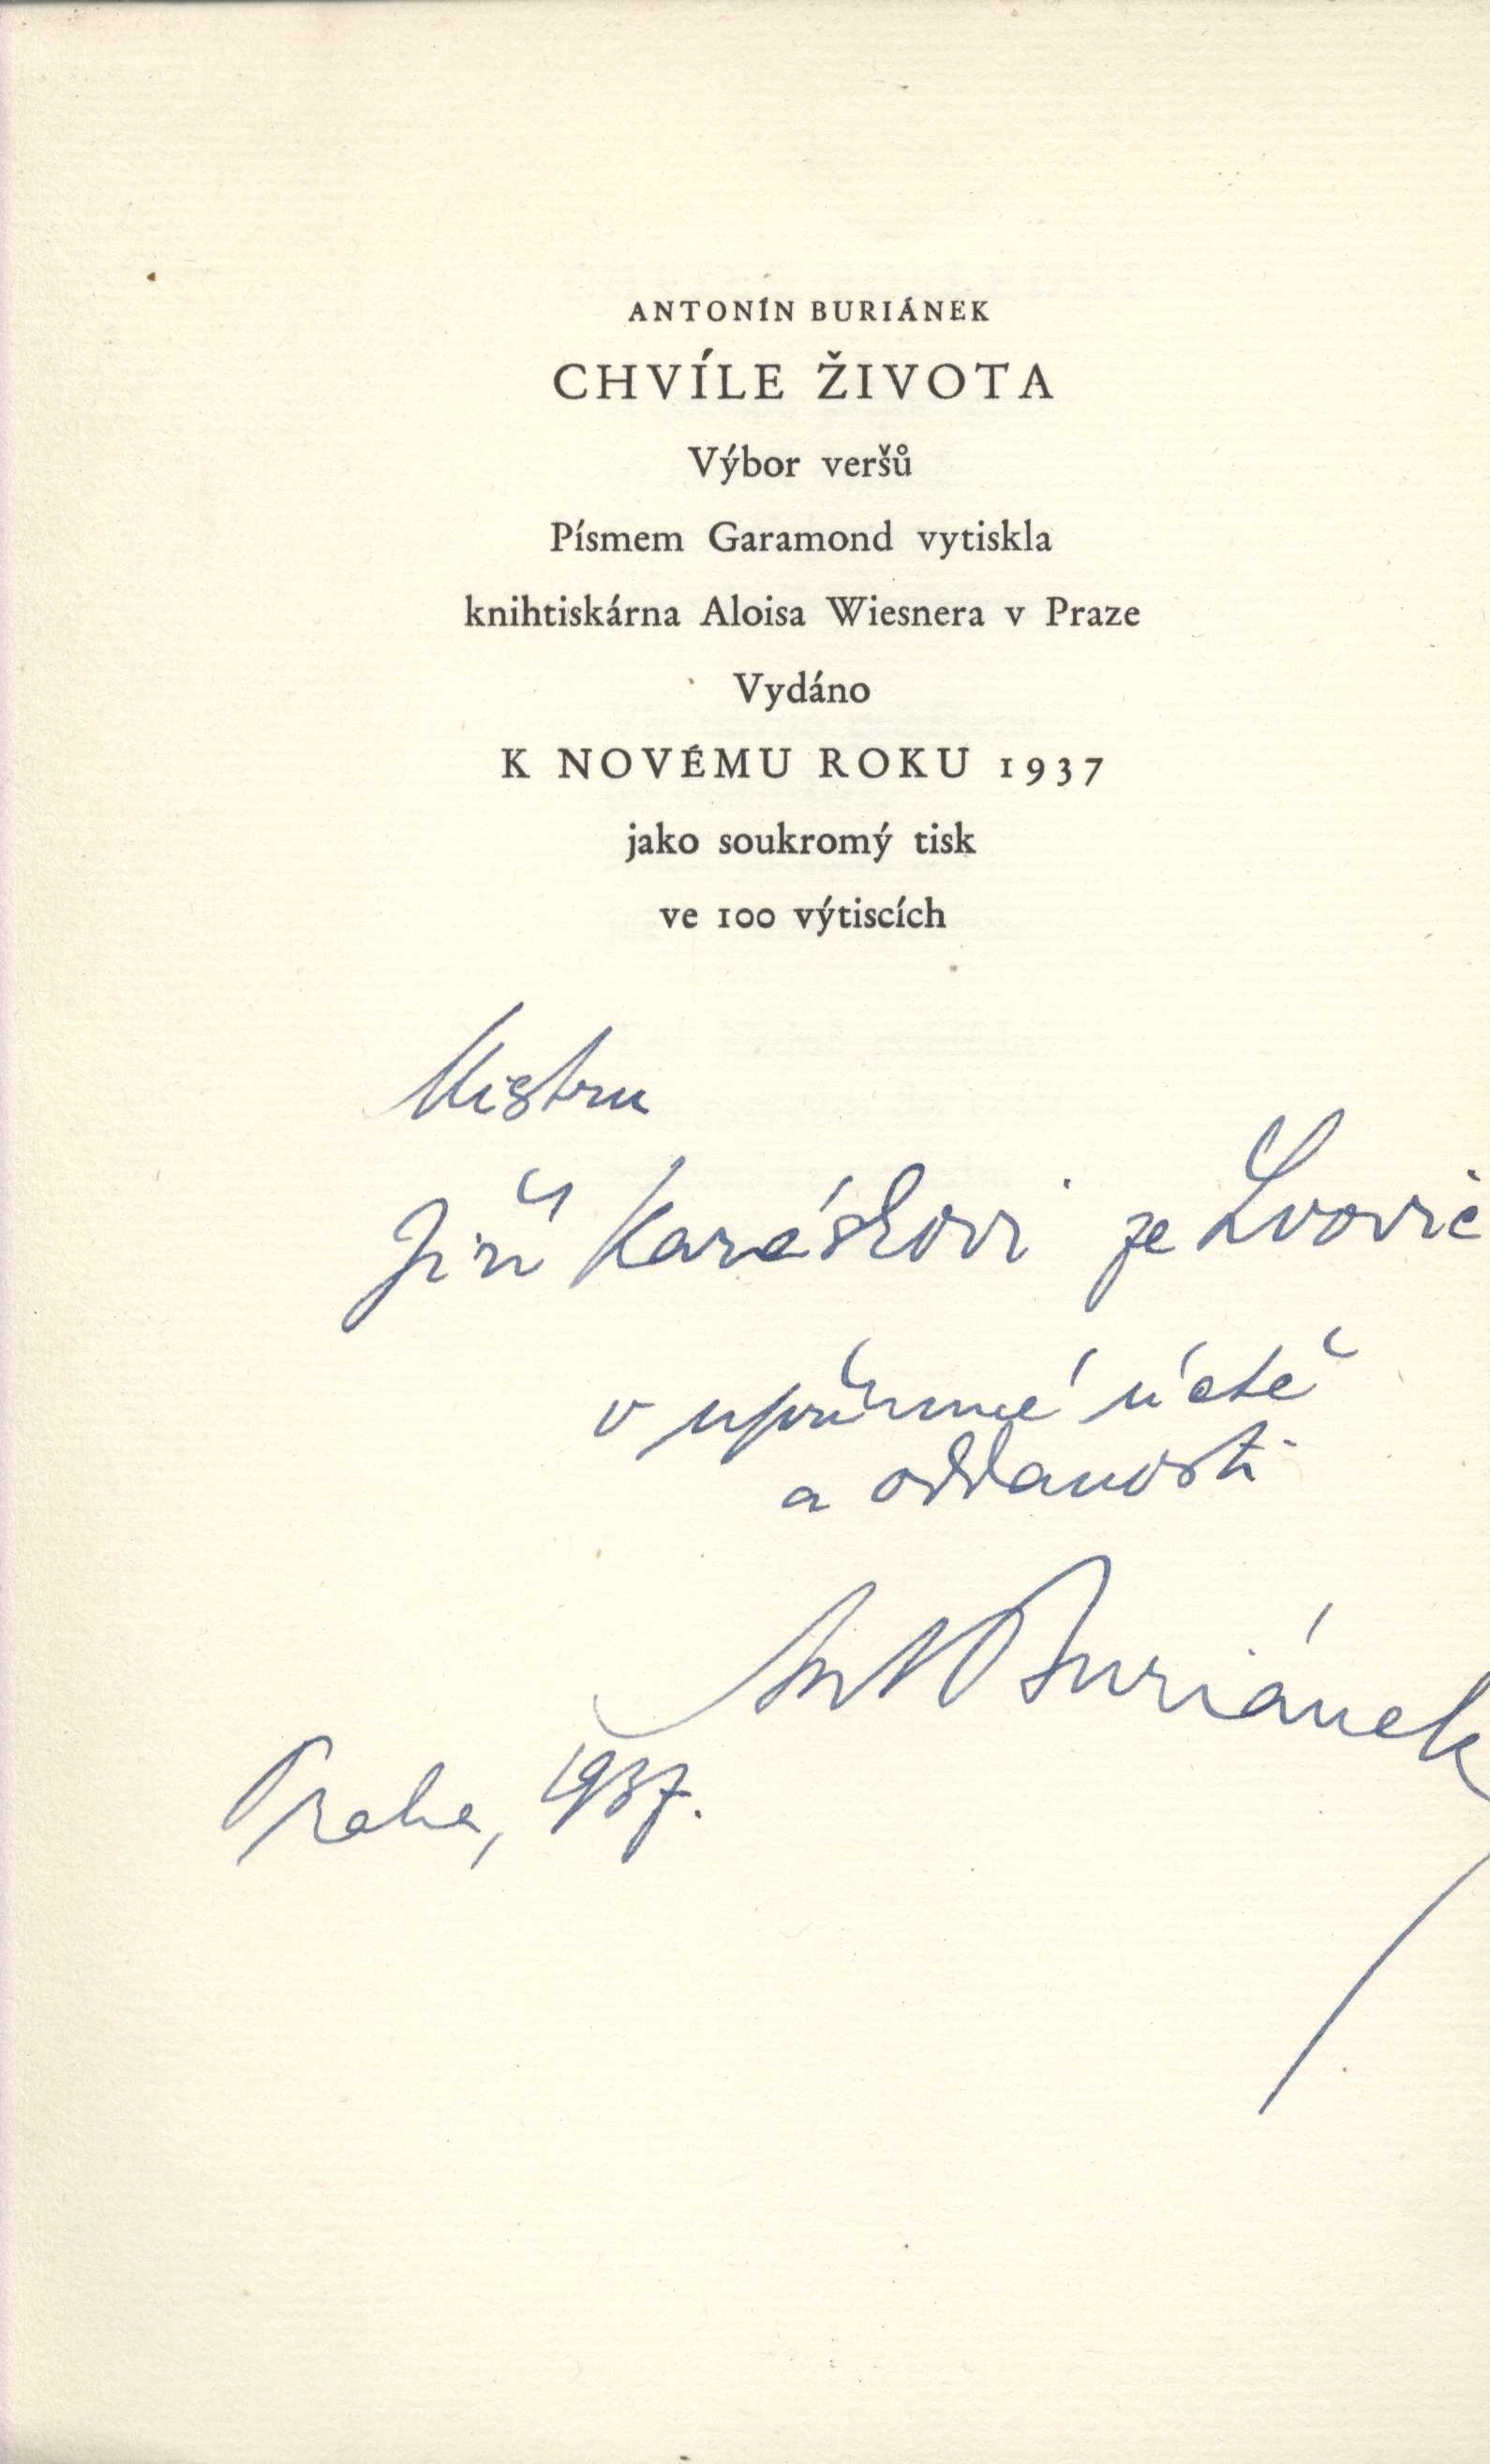 ANTONÍN BURIÁNEK
CHVÍLE ŽIVOTA
Výbor veršů
Písmem Garamond vytiskla
knihtiskárna Aloisa Wiesnera v Praze
Vydáno
K NOVÉMU ROKU 1937
jako soukromý tisk
ve 100 výtiscích
Mistru
Jiří Karáskovi ze Lvovic
v upřímné úctě
a oddanosti
Ant Buriánek
Praha, 1937.